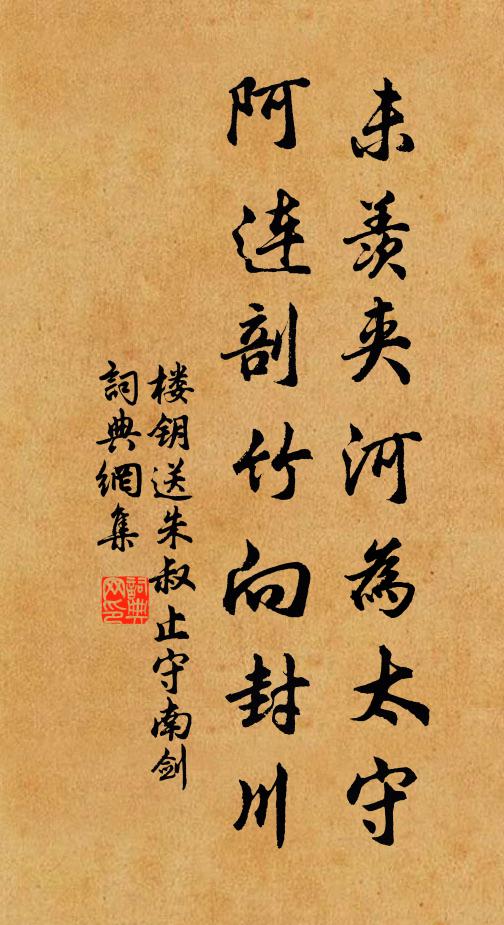 未羨夾河為太守
阿連剖竹向封川
楼钥送朱叔止守南剑
詞典網集
詞典網印